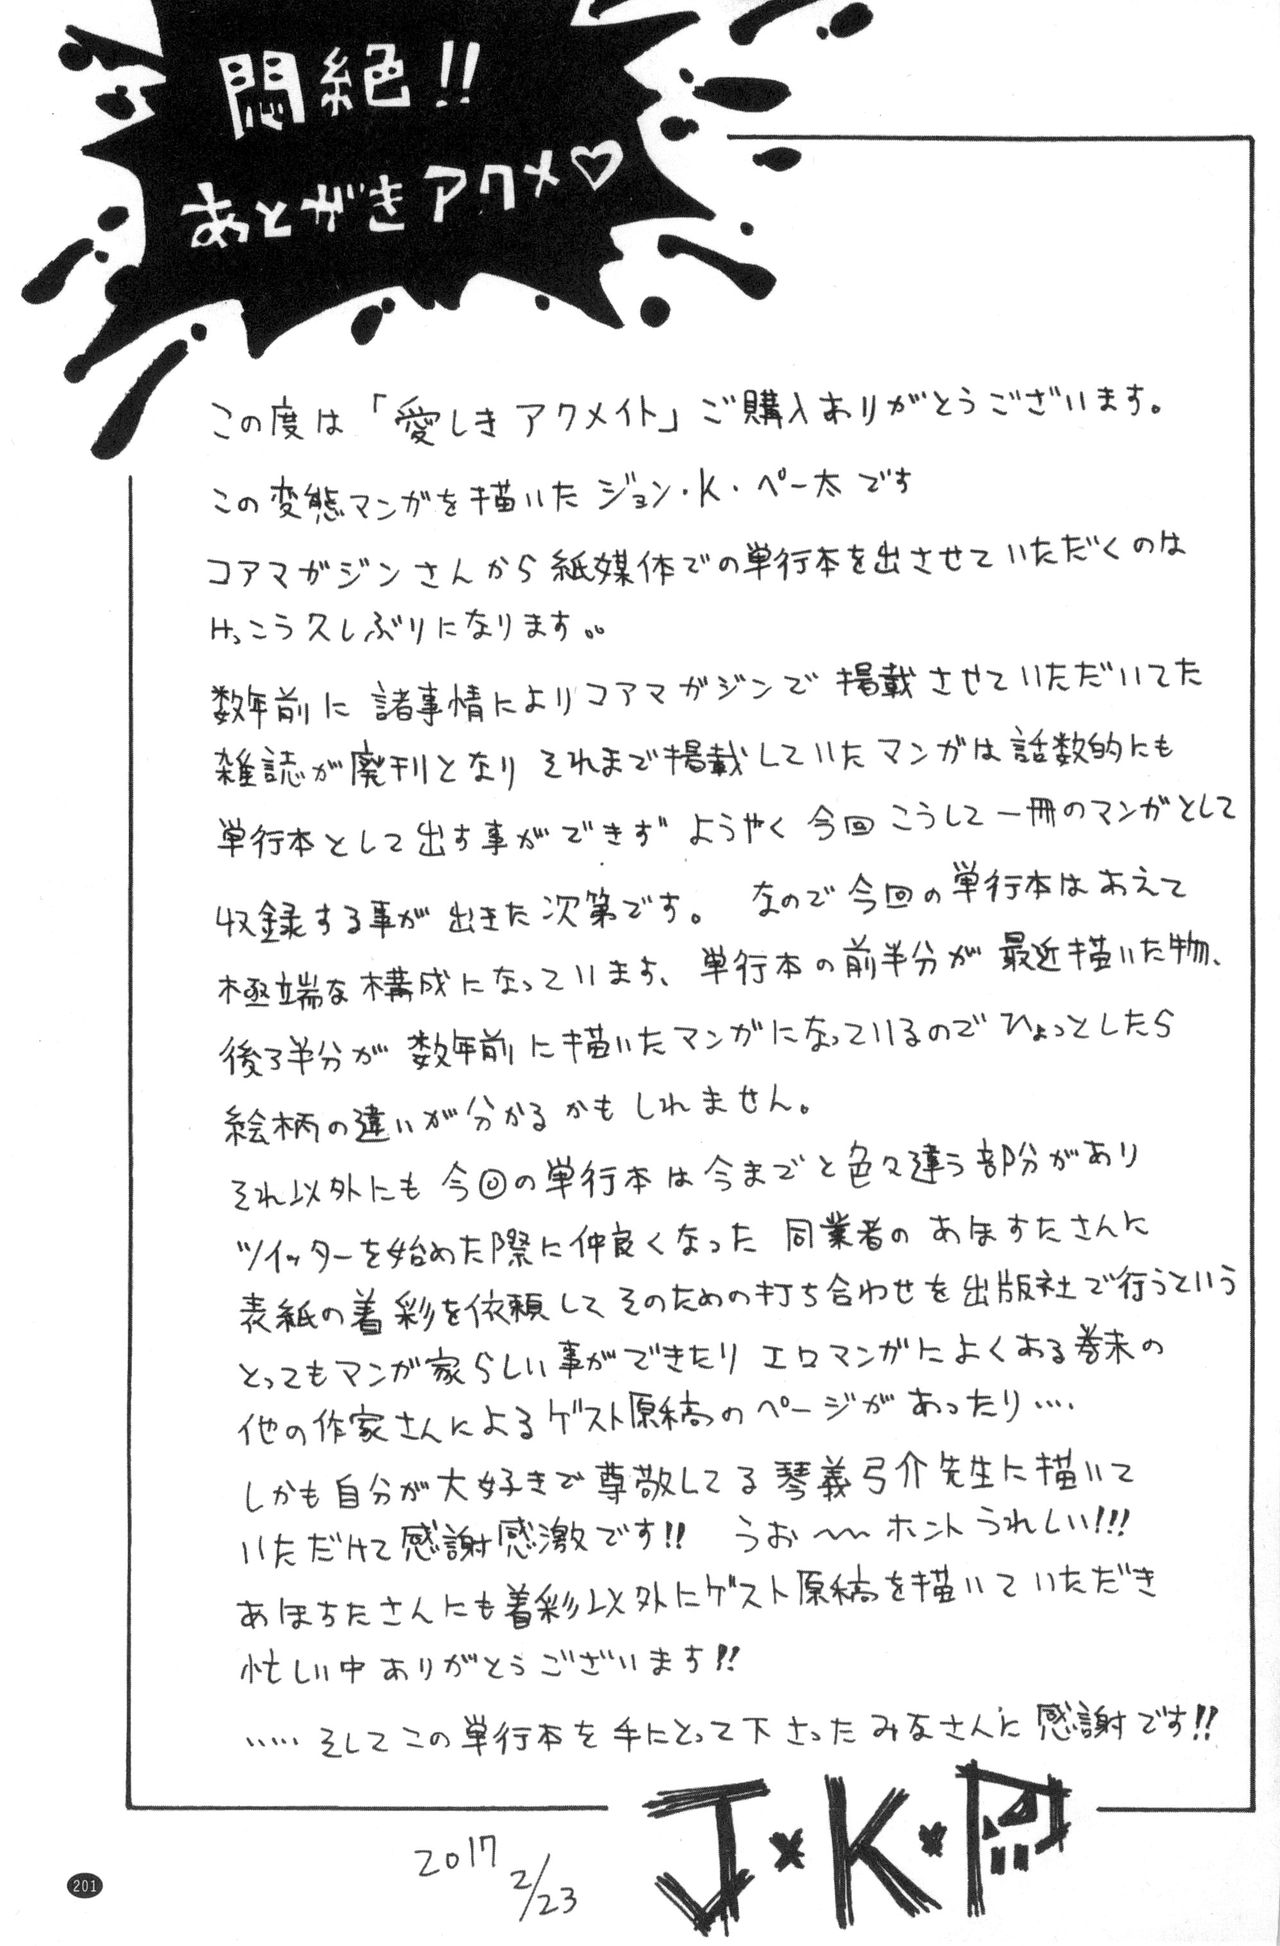 悶絶!!
あとがきアクメ♡
この度は「愛しきアクメイト」ご購入ありがとうございます。
この変態マンガを描いた ジョン・K・ペー太です
コアマガジンさんから紙媒体での単行本を出させていただくのは
けっこう久しぶりになります。。
数年前に 諸事情によりコアマガジンで 掲載させていただいてた
雑誌が廃刊となり それまで掲載していたマンガは話数的にも
単行本として出す事ができず ようやく今回こうして一冊のマンガとして
収録する事が出きた次第です。 なので今回の単行本はあえて
極端な構成になっています、単行本の前半分が 最近描いた物、
後ろ半分が 数年前に描いたマンガになっているのでひょっとしたら
絵柄の違いが分かるかもしれません。
それ以外にも 今回の単行本は今までと色々違う部分があり
ツイッターを始めた際に仲良くなった 同業者のあほすたさんに
表紙の着彩を依頼してそのための打ち合わせを出版社で行うという
とってもマンガ家らしい事ができたり エロマンガによくある巻末の
他の作家さんによるゲスト原稿のページがあったり‥‥
しかも自分が大好きで尊敬してる琴義弓介先生に描いて
いただけて感謝感激です!! うお〜〜ホントうれしい!!!
あほすたさんにも着彩以外にゲスト原稿を描いていただき
忙しい中ありがとうございます!!
‥‥‥そしてこの単行本を手にとって下さったみなさんに感謝です!!
J×K×P
2017 2/23
201